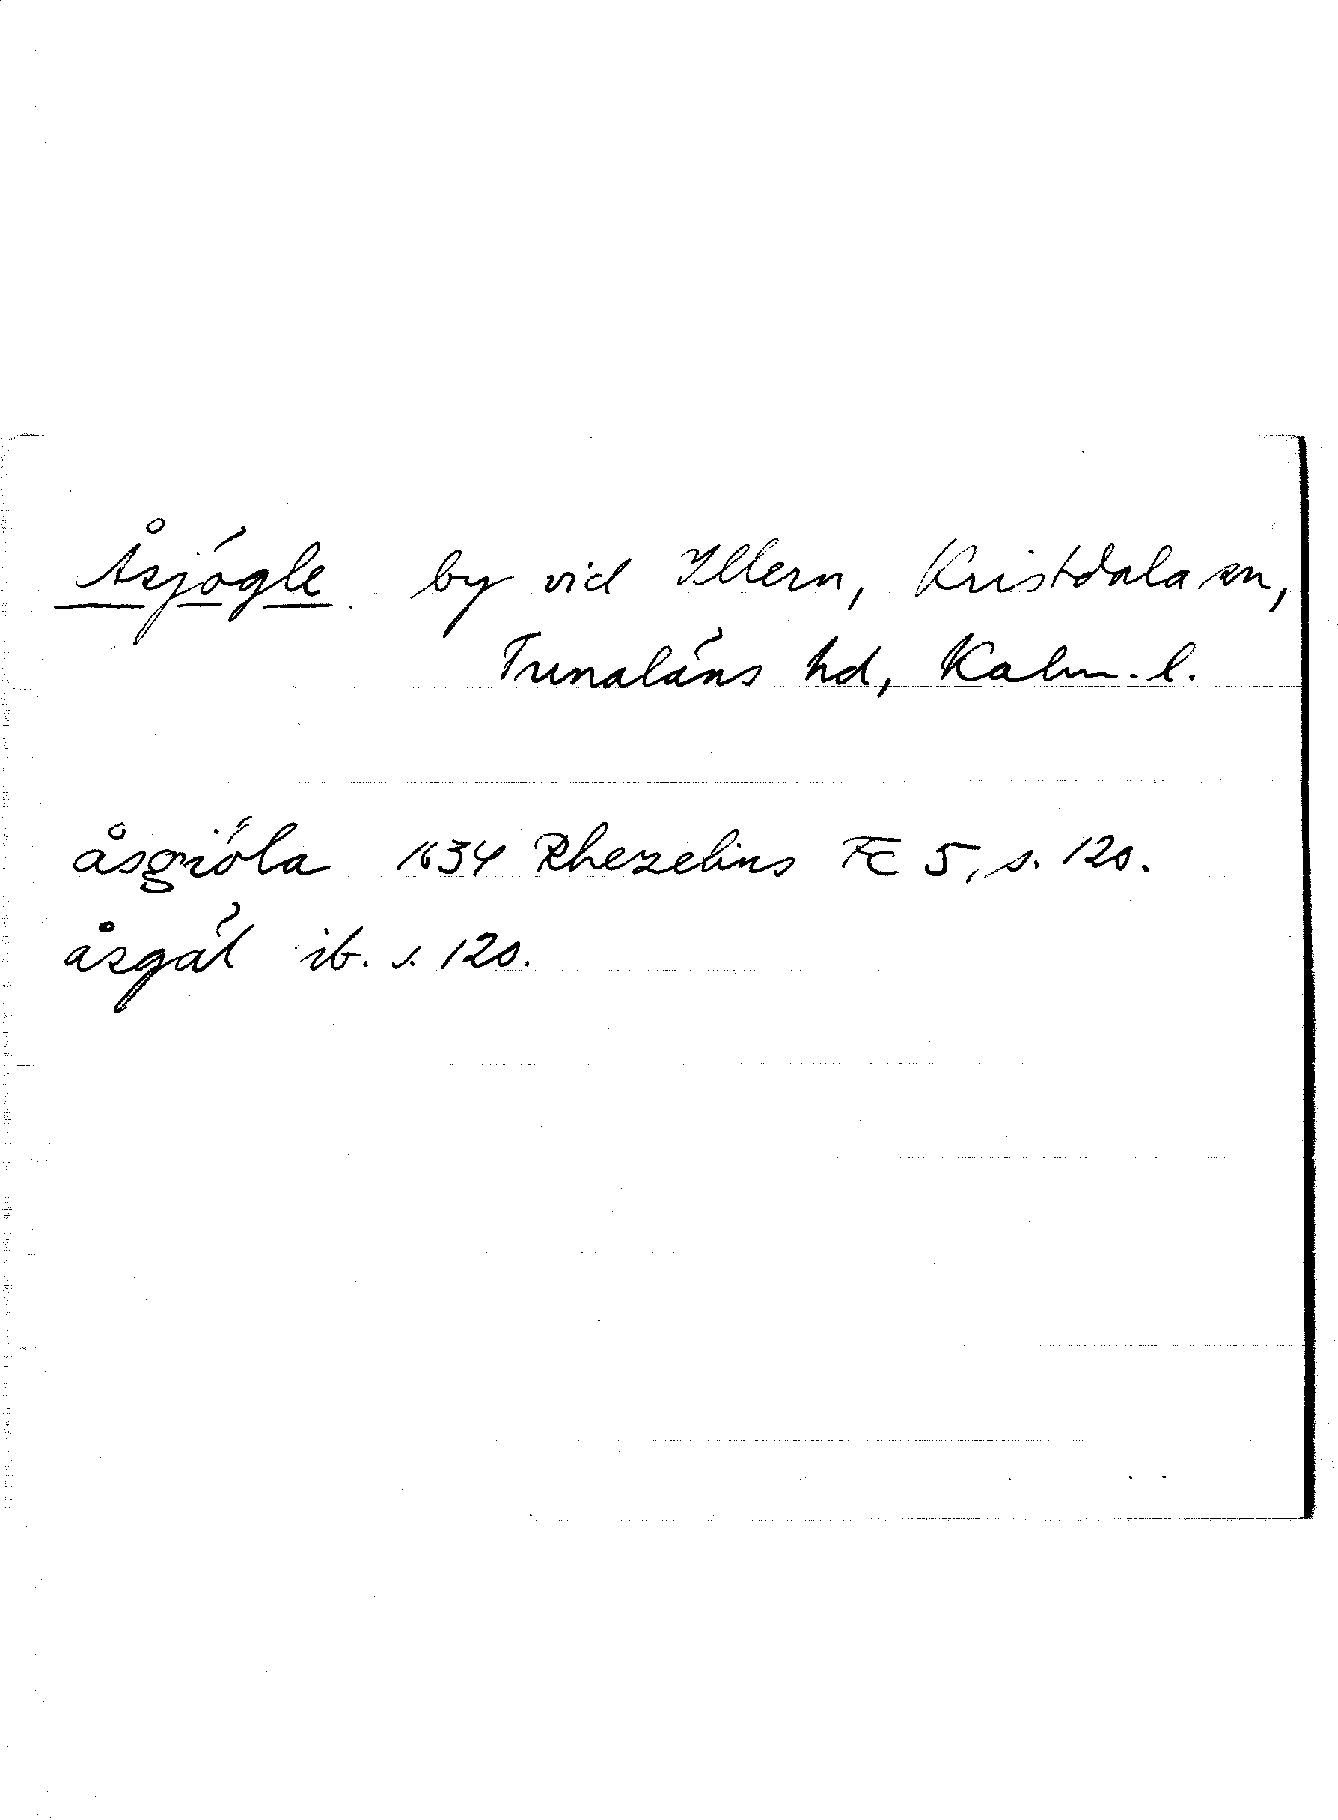 Åsjögle by vid Illern, Kristdala sn,
Tunaläns hd, Kalm. l.
åsgiöla 1634 Rhezelius Fc 5, s. 120.
åsgäl ib. s. 120.